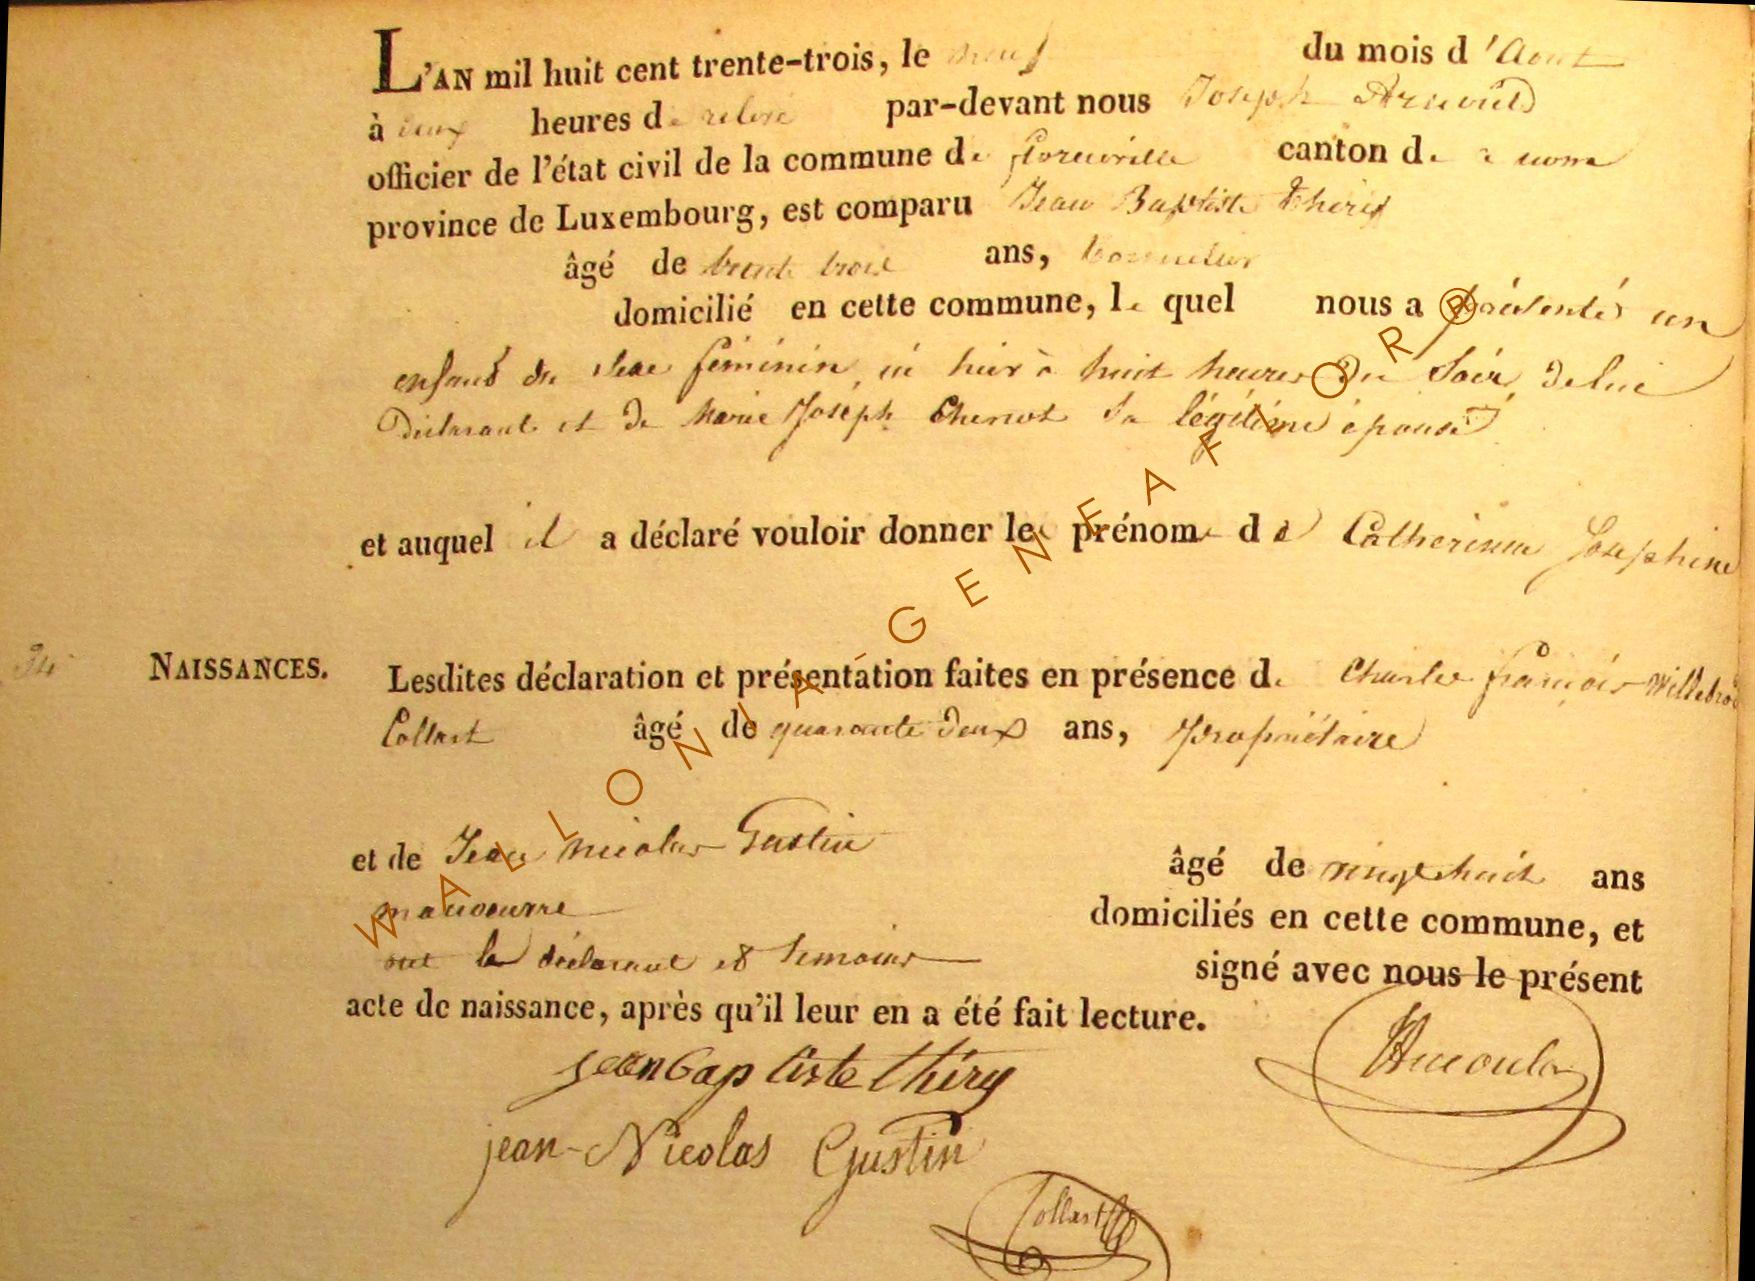 L'AN mil huit cent trente-trois, le neuf du mois d'Aout
à deux heures de relevé par-devant nous Joseph Arnould
officier de l'état civil de la commune de florenville canton de
province de Luxembourg, est comparu Jean Baptiste Thiry
âgé de trente trois ans,
domicilié en cette commune, le quel nous a présenté un
enfant du sexe féminin, né hier à huit heures du Soir, de lui
Déclarant et de Marie Joseph Sa légitime épouse
et auquel il a déclaré vouloir donner les prénoms de Catherinne Josephine
34 NAISSANCES. Lesdites déclaration et présentation faites en présence de Charles françois Willebrod
Collart âgé de quarante deux ans, propriétaire
et de Jean nicolas Gustin âgé de vingt huit ans
manoeuvre domiciliés en cette commune, et
ont le déclarant et temoins signé avec nous le présent
acte de naissance, après qu'il leur en a été fait lecture.
jean baptiste thiry
jean-Nicolas Gustin
Collart
WALLONIA-GENEAFLOR®